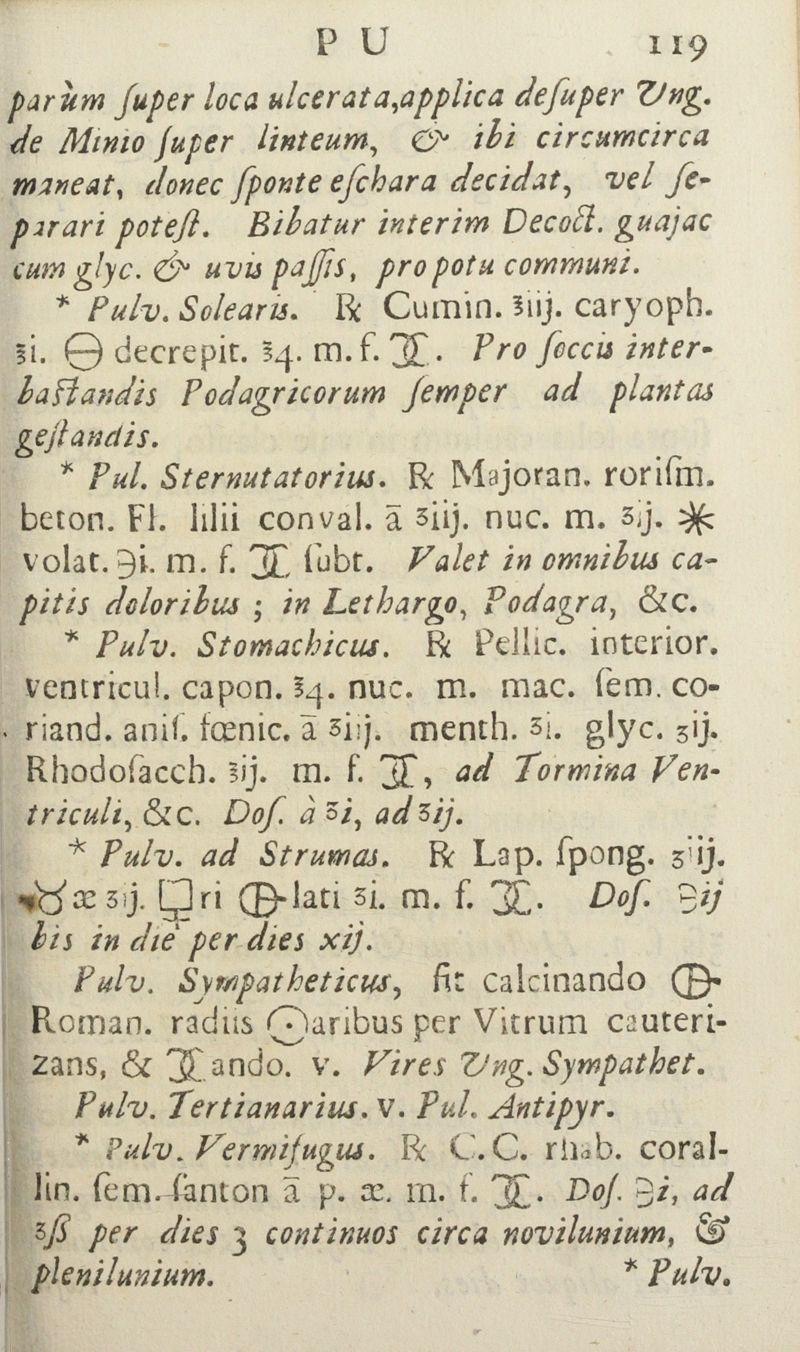 P U 119
parùm ſuper loca ulcerata,applica deſuper Ung.
de Minio ſuper linteum, & ibi circumcirca
maneat, donec ſponte eſchara decidat, vel ſe-
parari poteſt. Bibatur interim Decoct. guajac
cum glyc. & uvis paſſis, pro potu communi.
* Pulv. Solearis. ℞ Cumin. ℥iij. caryoph.
℥i. 🜔 decrepit. ℥4. m. f. 🝛. Pro ſoccis inter-
baſtandis Podagricorum ſemper ad plantas
geſtandis.
* Pul. Sternutatorius. ℞ Majoran. roriſm.
beton. Fl. lilii conval. ā ʒiij. nuc. m. ʒij. ✱
volat. ℈i. m. f. 🝛 ſubt. Valet in omnibus ca-
pitis doloribus ; in Lethargo, Podagra, &c.
* Pulv. Stomachicus. ℞ Pellic. interior.
ventricul. capon. ℥4. nuc. m. mac. ſem. co-
riand. aniſ. fœnic. ā ʒiij. menth. ʒi. glyc. ʒij.
Rhodoſacch. ℥ij. m. f. 🝛, ad Tormina Ven-
triculi, &c. Doſ. à ʒi, ad ʒij.
* Pulv. ad Strumas. ℞ Lap. ſpong. ʒiij.
æ ʒij. ri lati ʒi. m. f. 🝛. Doſ. ℈ij
bis in die per dies xij.
Pulv. Sympatheticus, fit calcinando 🜖
Roman. radiis ☉aribus per Vitrum cauteri-
zans, & 🝛ando. v. Vires Ung. Sympathet.
Pulv. Tertianarius. v. Pul. Antipyr.
* Pulv. Vermifugus. ℞ C.C. rhab. coral-
lin. ſem. ſanton ā p. æ. m. f. 🝛. Doſ. ℈i, ad
ʒß per dies 3 continuos circa novilunium, &
plenilunium. * Pulv.